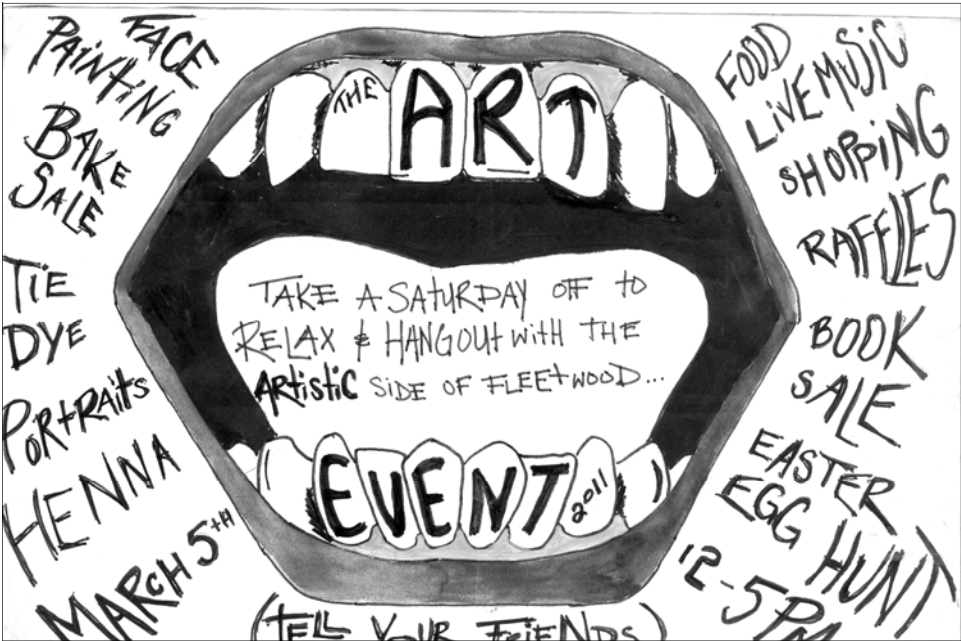 FACE
PAINTING
BAKE
SALE
TIE
DYE
PORTRAITS
HENNA
MARCH 5TH
THE ART
TAKE A SATURDAY OFF TO
RELAX & HANGOUT WITH THE
ARTISTIC SIDE OF FLEETWOOD...
EVENT 2011
(TELL YOUR FRIENDS)
FOOD
LIVE MUSIC
SHOPPING
RAFFLES
BOOK
SALE
EASTER
EGG HUNT
12-5PM